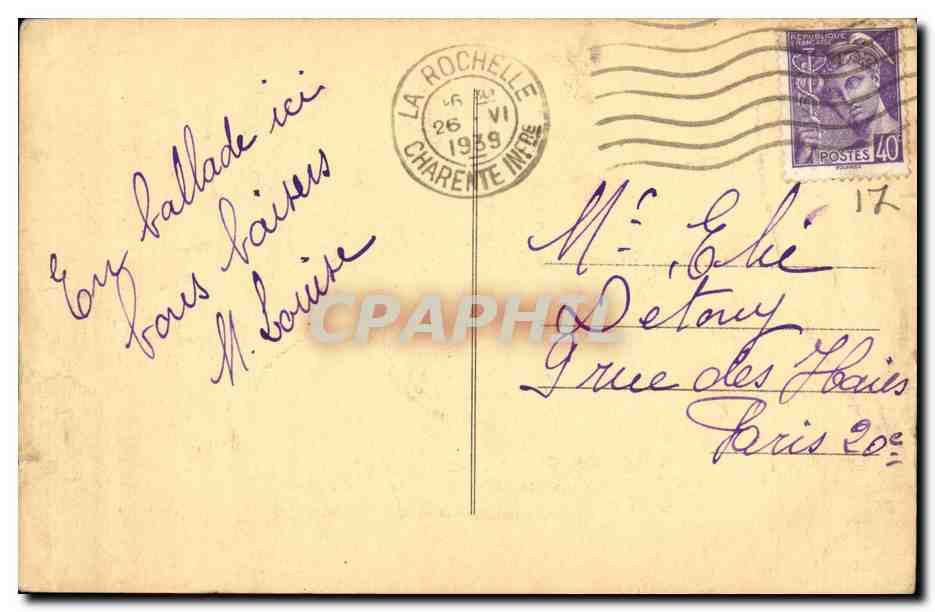 En ballade ici
bons baisers
M. Louise
LA ROCHELLE
26 VI
1939
CHARENTE INFRE
RÉPUBLIQUE
FRANÇAISE
POSTES 40
17
Mr Elie
Detouy
9 rue des Haies
Paris 20e
CPAPHIL